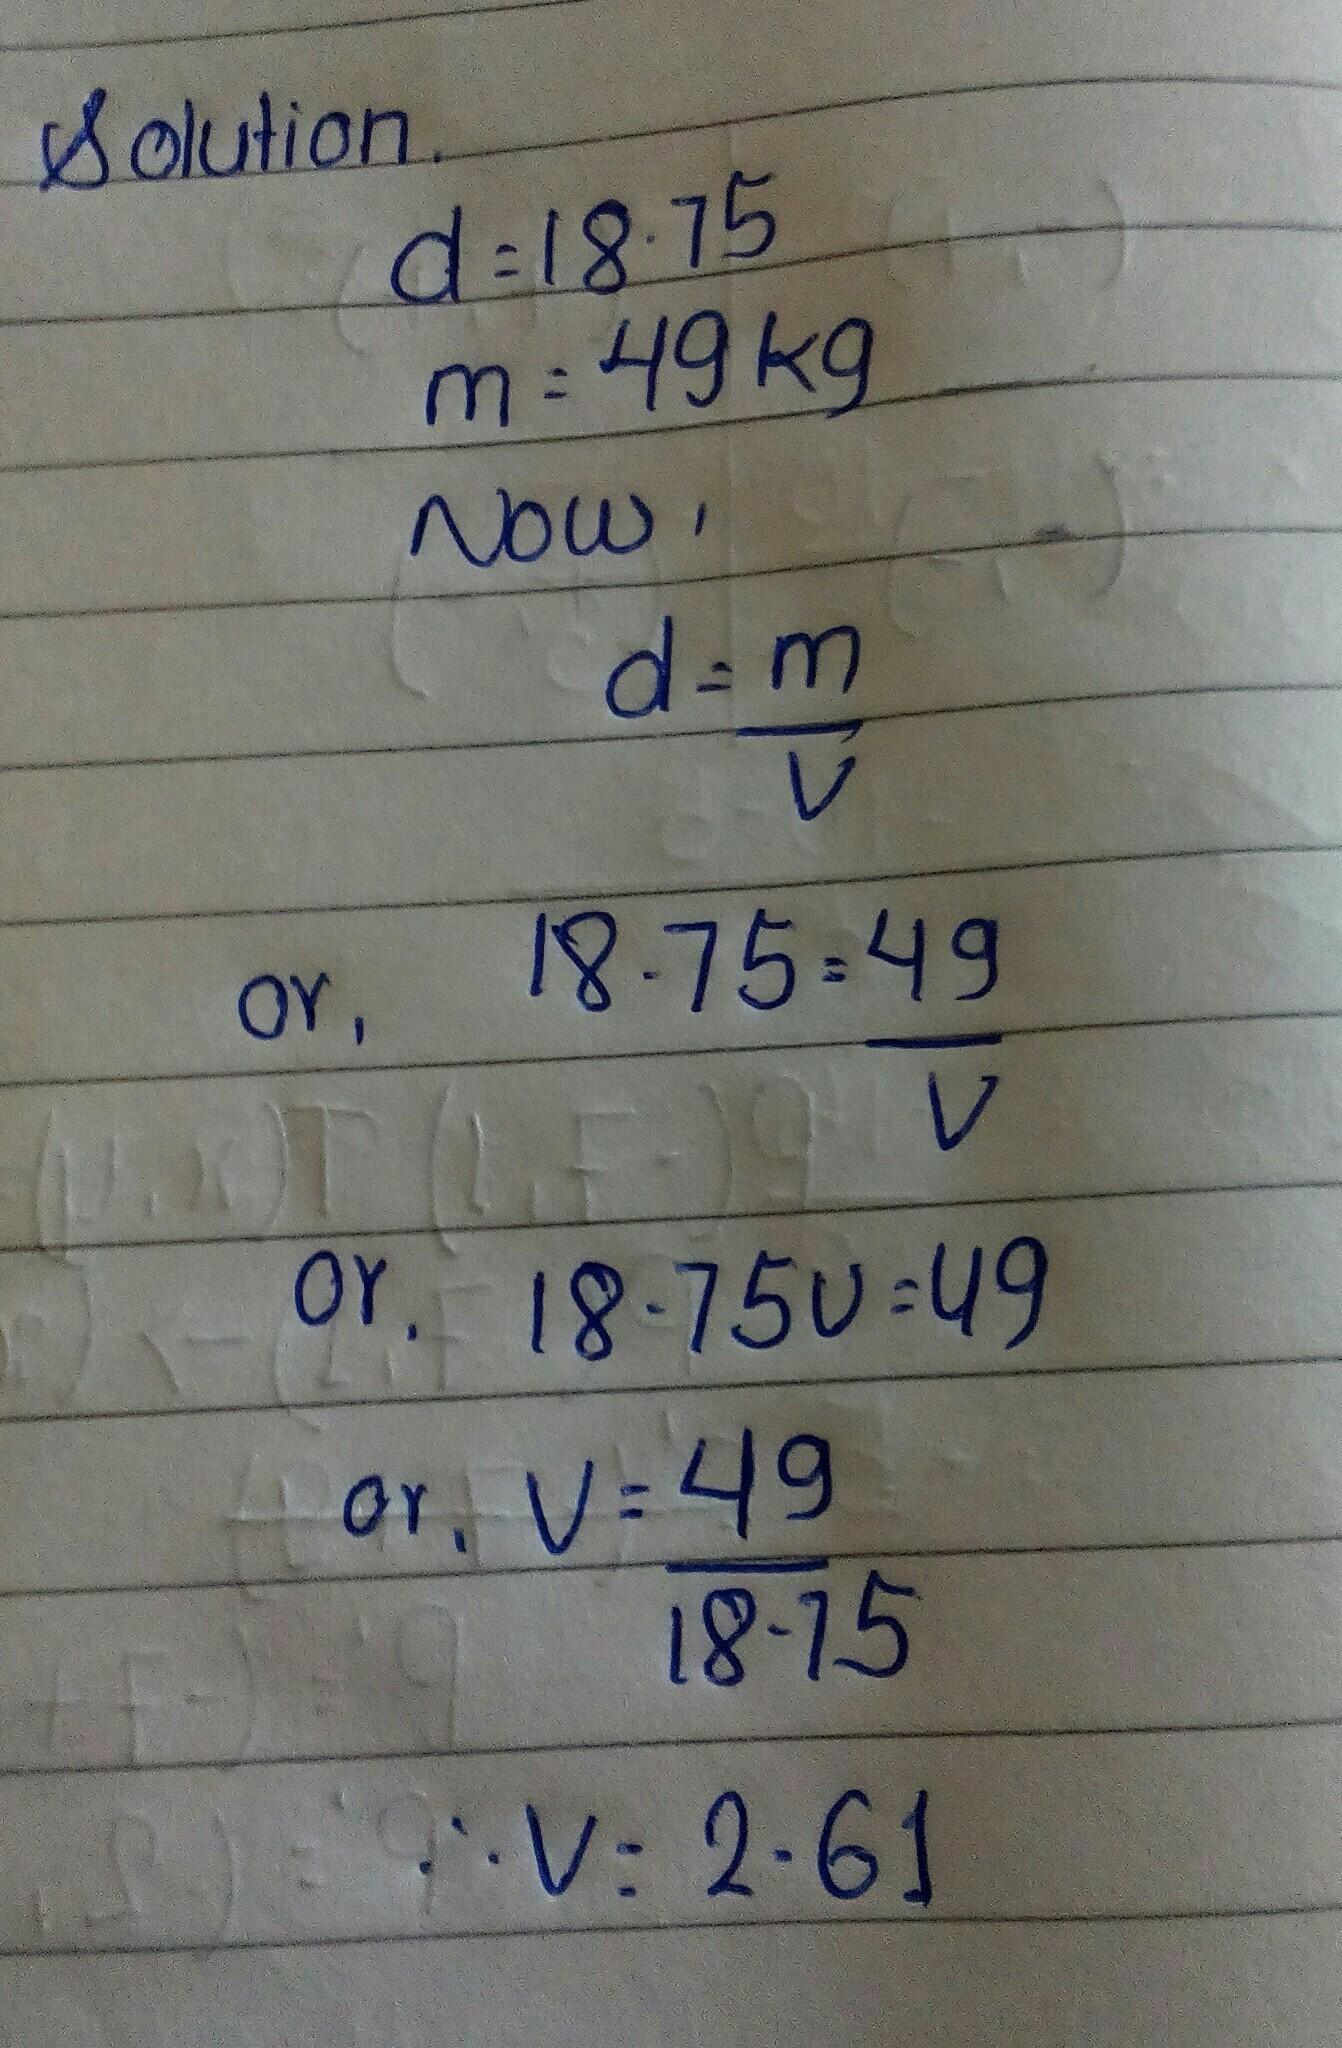 Solution.
d=18.75
m=49kg
Now,
d=m
v
or, 18.75=49
v
or, 18.75v=49
or, v=49
18.75
∴v=2.61